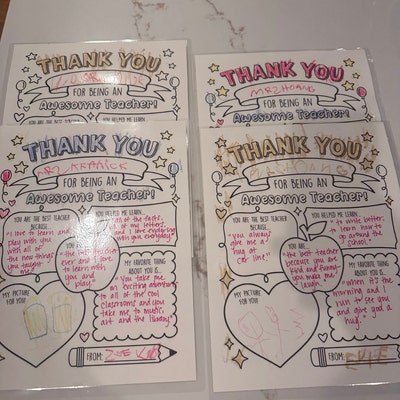 THANK YOU
FOR BEING AN
Awesome Teacher!
YOU ARE THE BEST
YOU HELPED ME LEARN...
THANK YOU
MRZHUANG
FOR BEING AN
Awesome Teacher!
THANK YOU
FOR BEING AN
Awesome Teacher!
YOU ARE THE BEST TEACHER
BECAUSE...
"I love to learn and
play with you
with all of
the new things
you taught
me."
YOU HELPED ME LEARN...
"all of the facts,
all of my letters,
and I love enjoying
with you everyday."
YOU ARE...
"the bestest teacher
ever and I love
to learn with
you and
play."
MY FAVORITE THING
ABOUT YOU IS...
"You take me
on exciting adventures
to all of the cool
classrooms and you
take me to music,
art and the library."
MY PICTURE
FOR YOU!
FROM:
THANK YOU
FOR BEING AN
Awesome Teacher!
YOU ARE THE BEST TEACHER
BECAUSE...
"You always
give me a
hug at
car line"
YOU HELPED ME LEARN...
"to write better,
to learn how to
go around the
school."
YOU ARE...
"the best teacher
because you are
kind and funny.
you make me
laugh."
MY FAVORITE THING
ABOUT YOU IS...
"When it's the
morning and I
run to see you
and give you a
hug."
MY PICTURE
FOR YOU!
FROM: EVIE